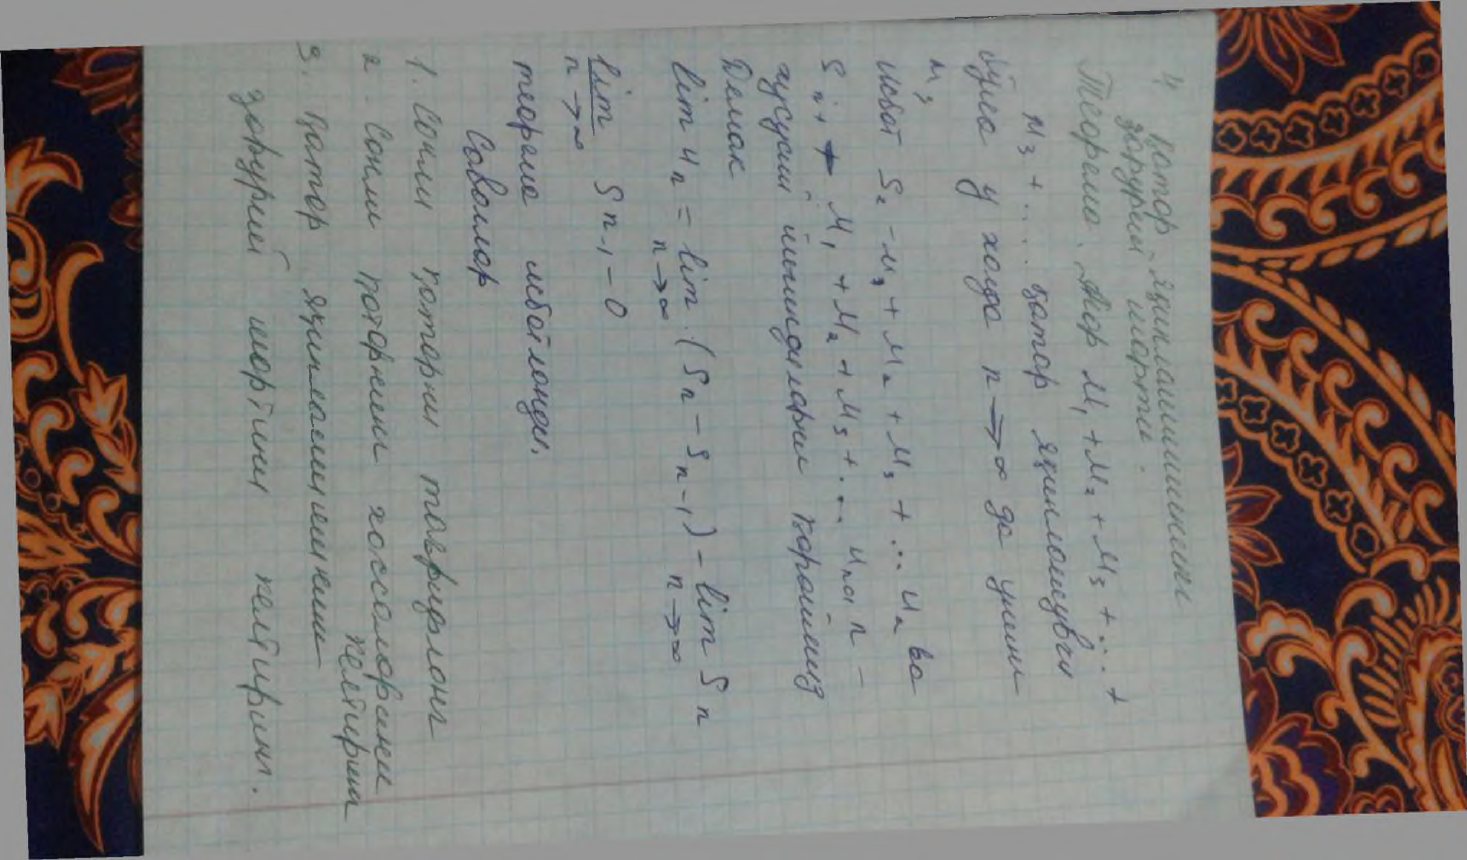 4 қатор яқинлашишининг
зарурий шарти.
Теорема. Агар U₁ + U₂ + U₃ + ... +
U₃ + ... қатор яқинлашувчи
бўлса у холда n → ∞ да унинг
U₃
Исбот S₂ - U₃ + U₂ + U₃ + ... U₂ ва
Sₙ + U₁ + U₂ + U₃ + ... n -
хусусий йиғиндиларни қараймиз
Демак
lim uₙ = lim (Sₙ - Sₙ₋₁) - lim Sₙ
n→∞ n→∞
lim Sₙ₋₁ - 0
n→∞
теорема исботланди.
Саволлар
1. Сонли қаторни таърифланг
2. Сонли қаторнинг хоссаларини
келтиринг
3. Қатор яқинлашишининг
зарурий шартини келтиринг.